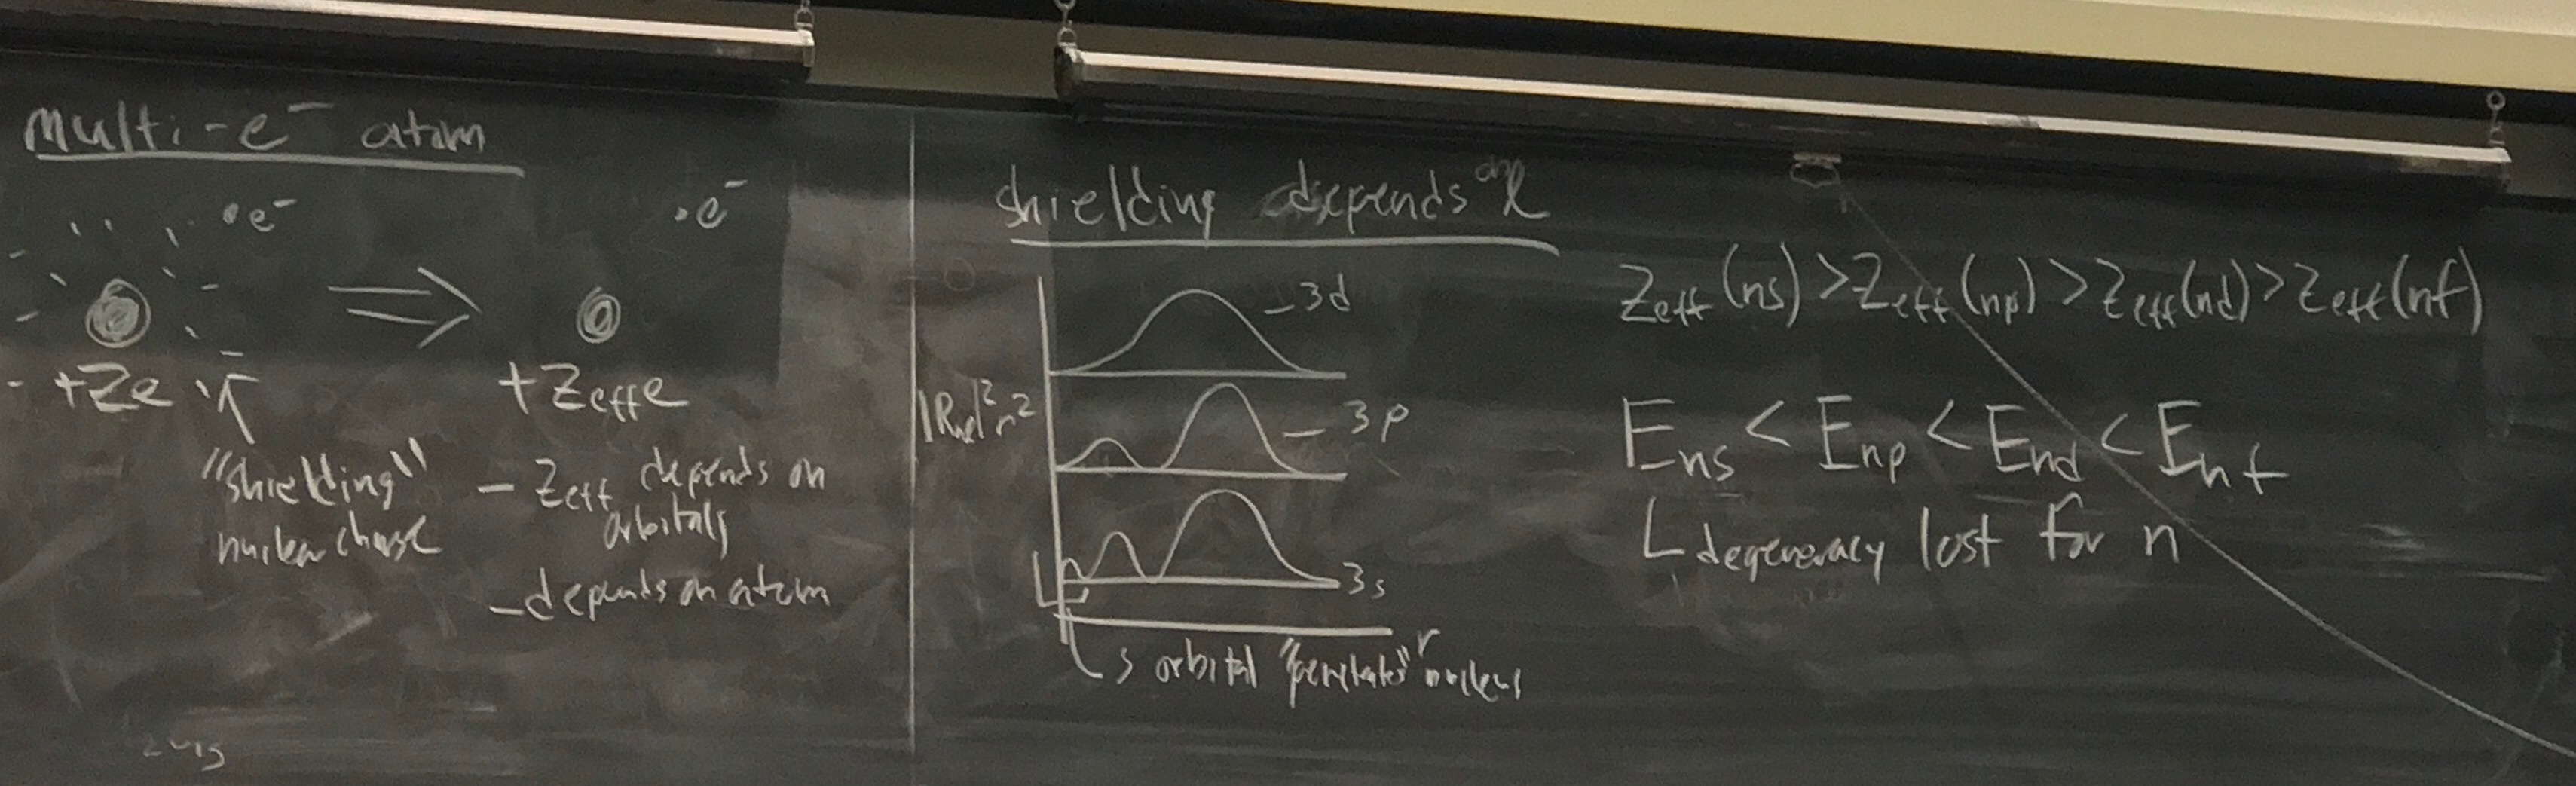 multi-e⁻ atom
•e⁻
+Ze
"shielding"
nuclear charge
•e⁻
+Zeffe
- Zeff depends on
orbitals
- depends on atom
shielding depends on l
|Rnl|²r²
- 3d
- 3p
3s
r
s orbital "penetrates" nucleus
Zeff(ns) > Zeff(np) > Zeff(nd) > Zeff(nf)
Ens < Enp < End < Enf
degeneracy lost for n